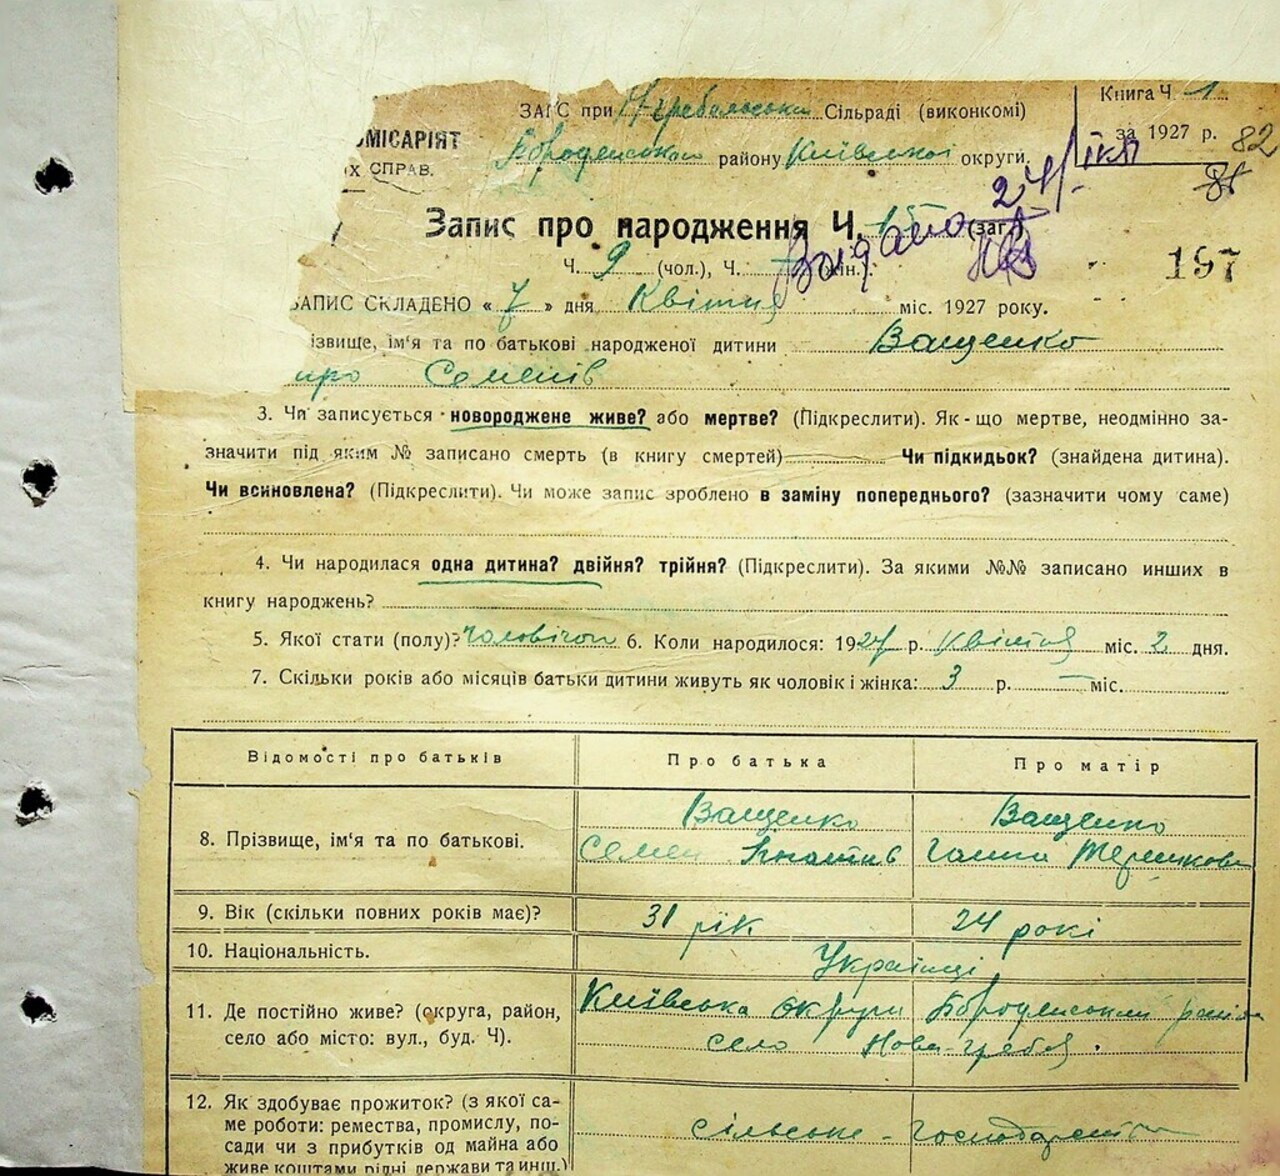 ЗАГС при Н-гребельськ Сільраді (виконкомі)
Книга Ч. 1
ОМІСАРІЯТ
Бородянського району Київської округи.
за 1927 р. 82
Х СПРАВ.
24/
81
Запис про народження Ч. 15 (заг.)
Видано
Ч. 9 (чол.), Ч. — (жін.).
197
ЗАПИС СКЛАДЕНО « 7 » дня Квітня міс. 1927 року.
різвище, ім'я та по батькові народженої дитини Ващенко
Семенів
3. Чи записується новороджене живе? або мертве? (Підкреслити). Як-що мертве, неодмінно за-
значити під яким № записано смерть (в книгу смертей) Чи підкидьок? (знайдена дитина).
Чи всиновлена? (Підкреслити). Чи може запис зроблено в заміну попереднього? (зазначити чому саме)
4. Чи народилася одна дитина? двійня? трійня? (Підкреслити). За якими №№ записано инших в
книгу народжень?
5. Якої стати (полу)? чоловічої 6. Коли народилося: 1927 р. Квітня міс. 2 дня.
7. Скільки років або місяців батьки дитини живуть як чоловік і жінка: 3 р. — міс.
Відомості про батьків Про батька Про матір
Ващенко Ващенко
8. Прізвище, ім'я та по батькові. Семен Гнатів Ганна Терешкова
9. Вік (скільки повних років має)? 31 рік 24 рокі
10. Національність. Українці
11. Де постійно живе? (округа, район, Київська округи Бородянський район
село або місто: вул., буд. Ч). село Нова-гребля.
12. Як здобуває прожиток? (з якої са-
ме роботи: ремества, промислу, по- сільське-господарство
сади чи з прибутків од майна або
живе коштами рідні держави та инш.)